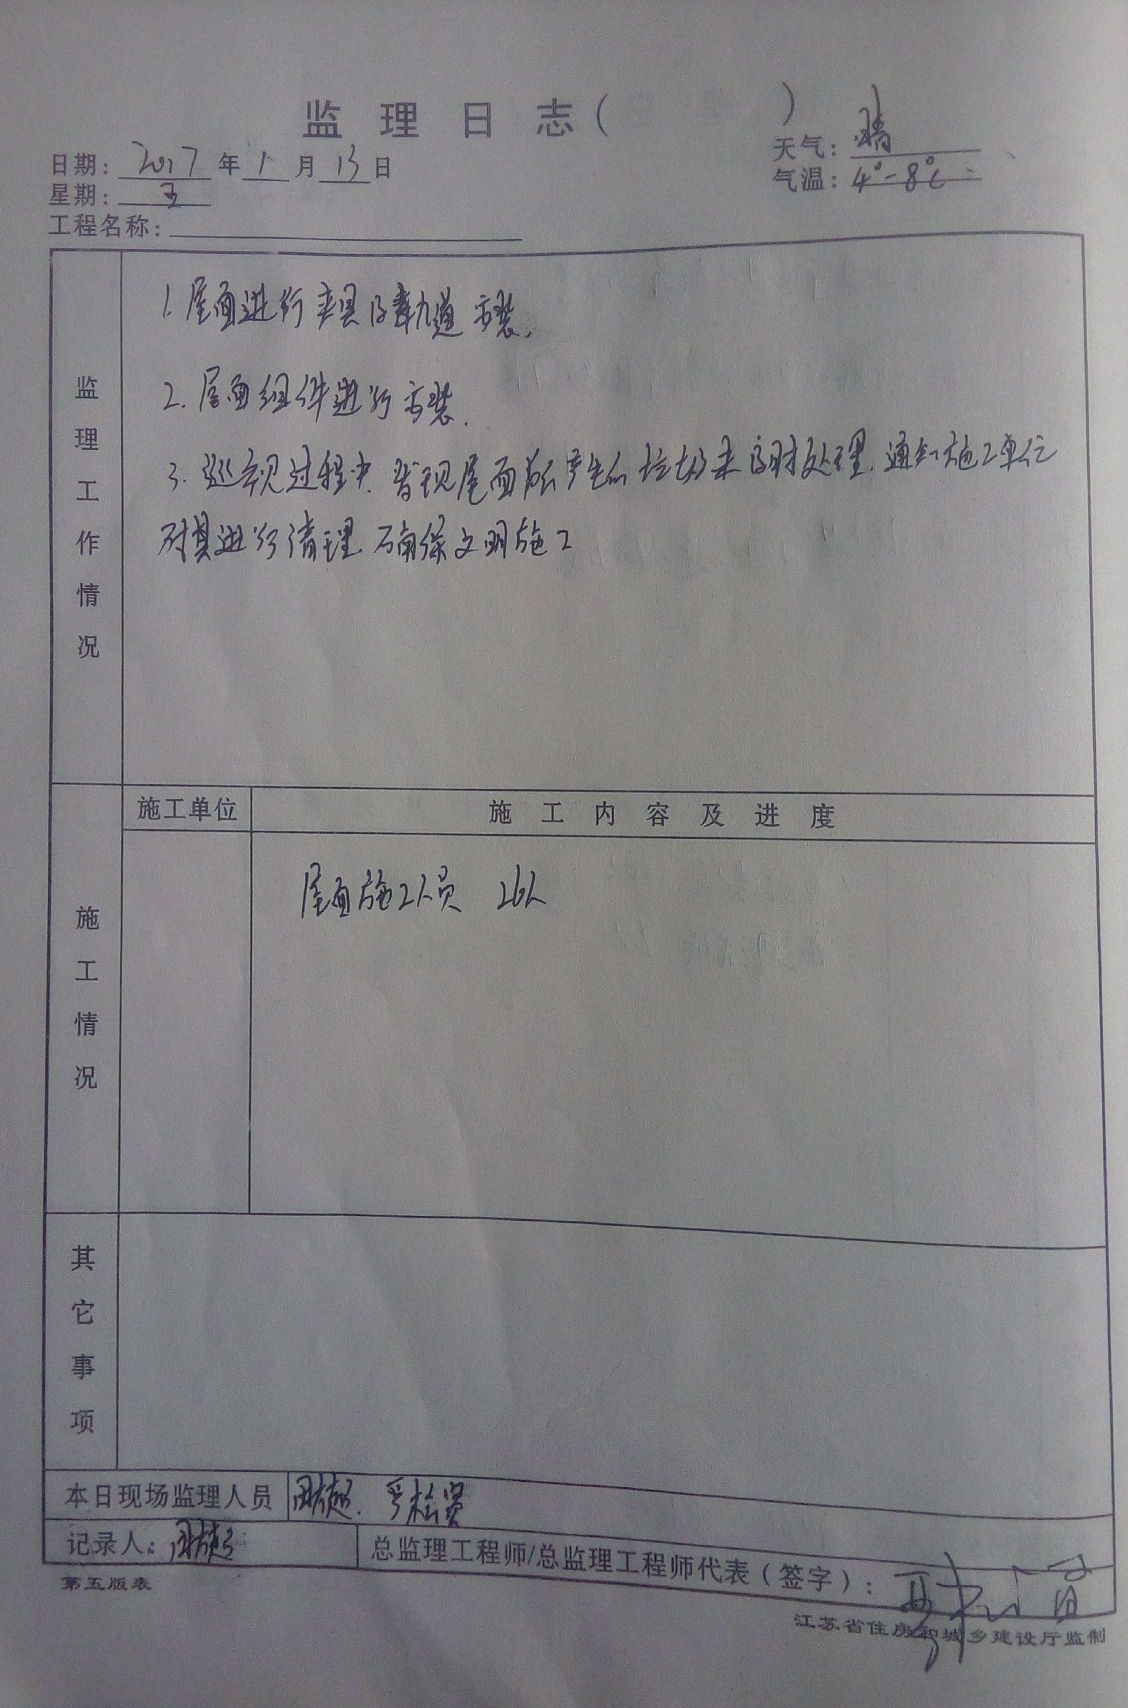 监理日志( )
日期: 2017 年 1 月 13 日
天气: 晴
星期: 五
气温: 4°-8℃
工程名称:
监理工作情况
1. 屋面进行夹具及轨道安装.
2. 屋面组件进行安装.
3. 巡视过程中, 发现屋面产生的垃圾未及时处理, 通知施工单位
对其进行清理, 确保文明施工
施工情况
施工单位
施工内容及进度
屋面施工人员 26人
其它事项
本日现场监理人员
记录人:
总监理工程师/总监理工程师代表(签字):
第五版表
江苏省住房和城乡建设厅监制